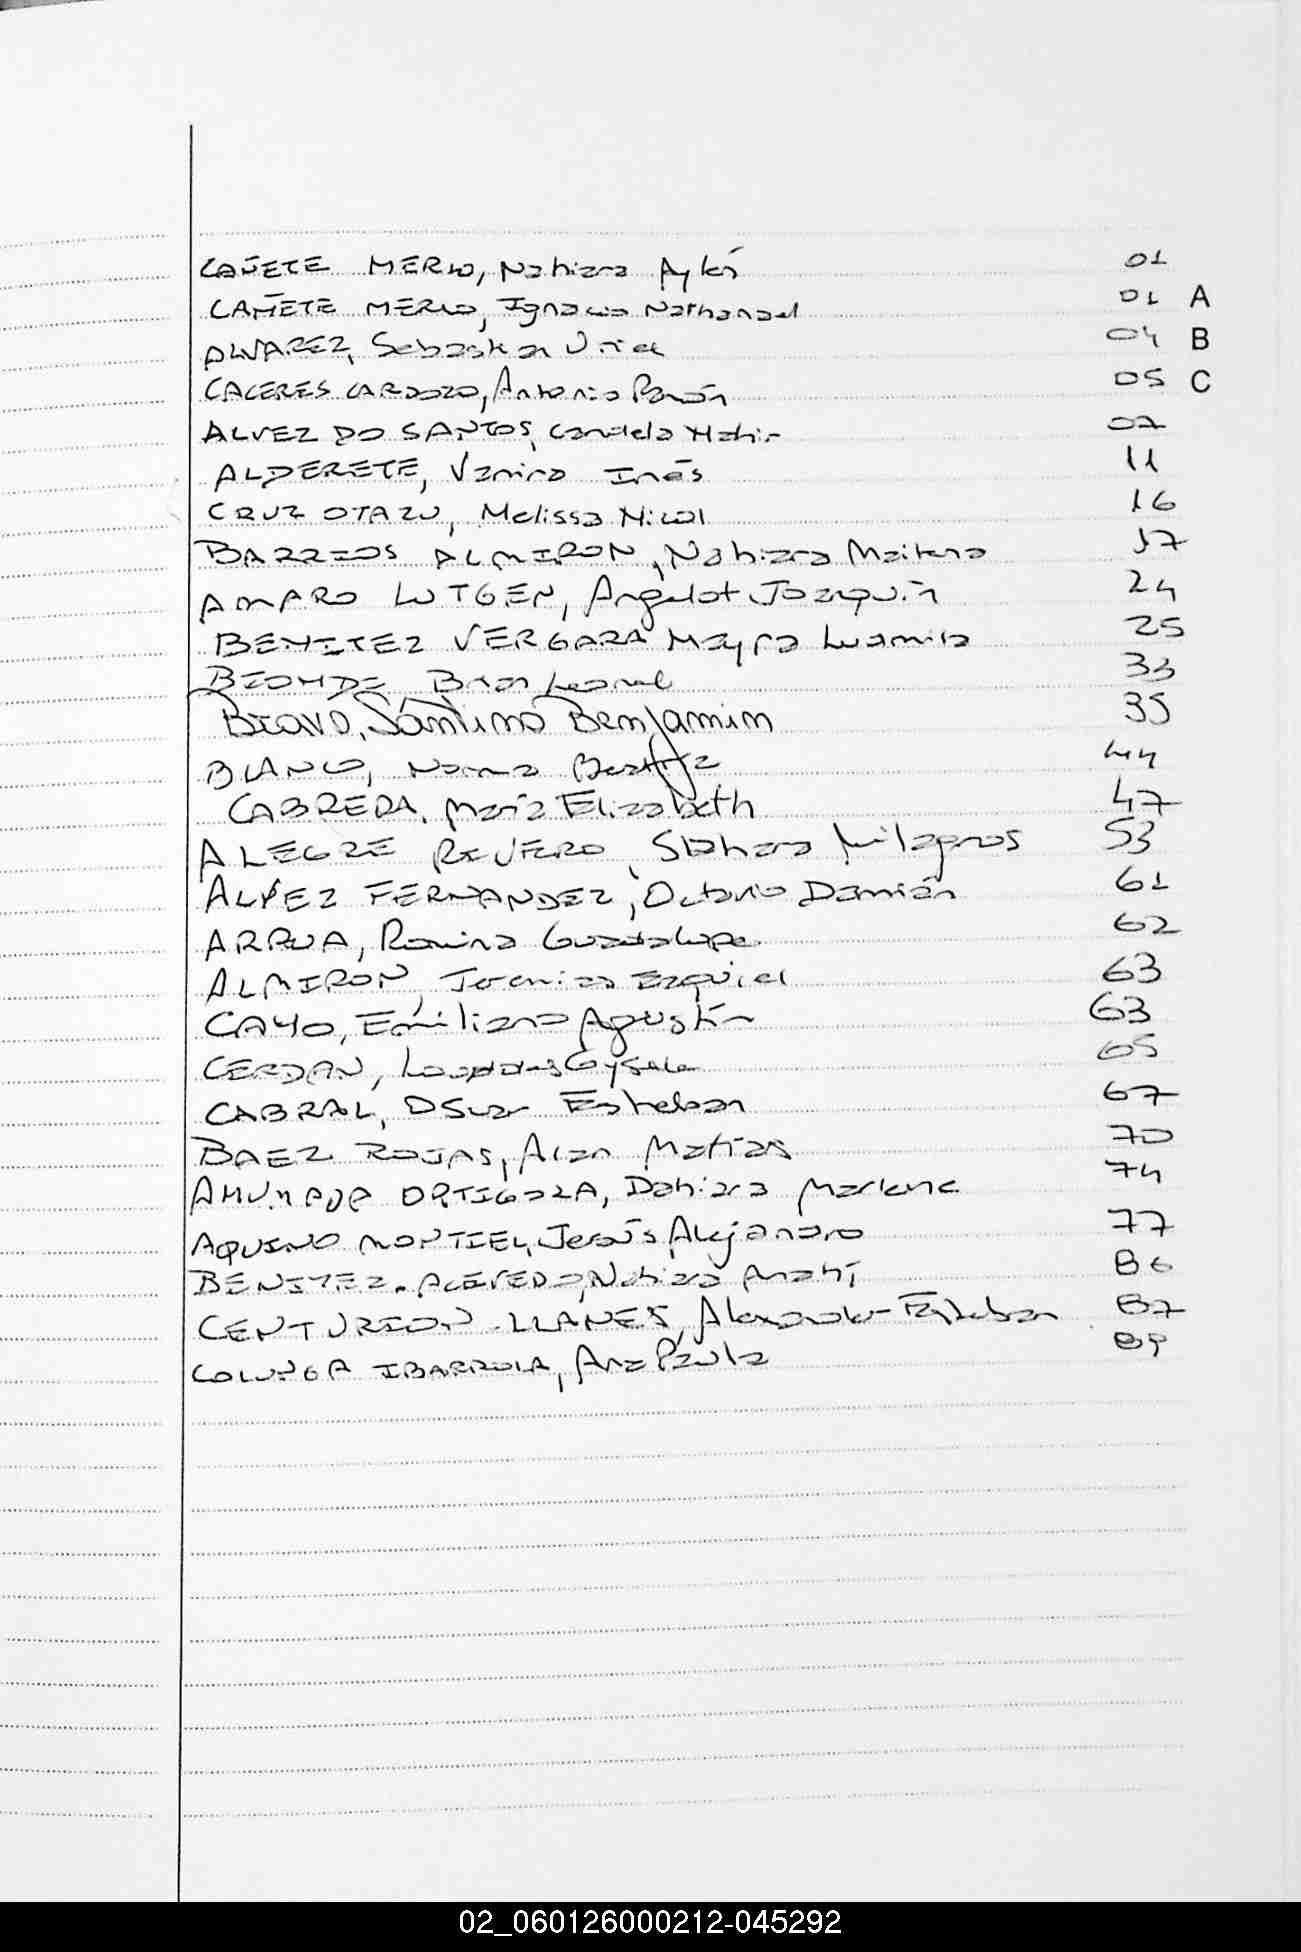 CAÑETE MERLO, Nahiara Aylén 01
CAÑETE MERLO, Ignacio Nathanael 01 A
ALVAREZ, Sebastian Uriel 04 B
CACERES CARDOZO, Antonio Ramón 05 C
ALVEZ DO SANTOS, Candela 07
ALDERETE, Yanina Inés 11
CRUZ OTAZU, Melissa Nicol 16
BARRIOS ALMIRON, Nahiara Maitena 17
AMARO LUTGEN, Angelot Joaquín 24
BENITEZ VERGARA Mayra Luamila 25
Brian Leonel 33
BRAVO, Santino Benjamin 35
BLANCO, Norma Beatriz 44
CABRERA, María Elizabeth 47
ALEGRE RIVERO, Milagros 53
ALVEZ FERNANDEZ, Octavio Damián 61
ARRUA, Romina Guadalupe 62
ALMIRON, Jeremias Ezequiel 63
CAYO, Emiliano Agustín 63
CERDAN, Lourdes Gysele 65
CABRAL, Oscar Esteban 67
BAEZ ROJAS, Alan Matías 70
AHUMADA ORTIGOZA, Dahiara Marlene 74
AQUINO MONTIEL, Jesús Alejandro 77
BENITEZ ACEVEDO, Nahiara Anahí 86
CENTURION LLANES, Alexander Esteban 87
COLUNGA IBARROLA, Ana Paula 89
02_060126000212-045292